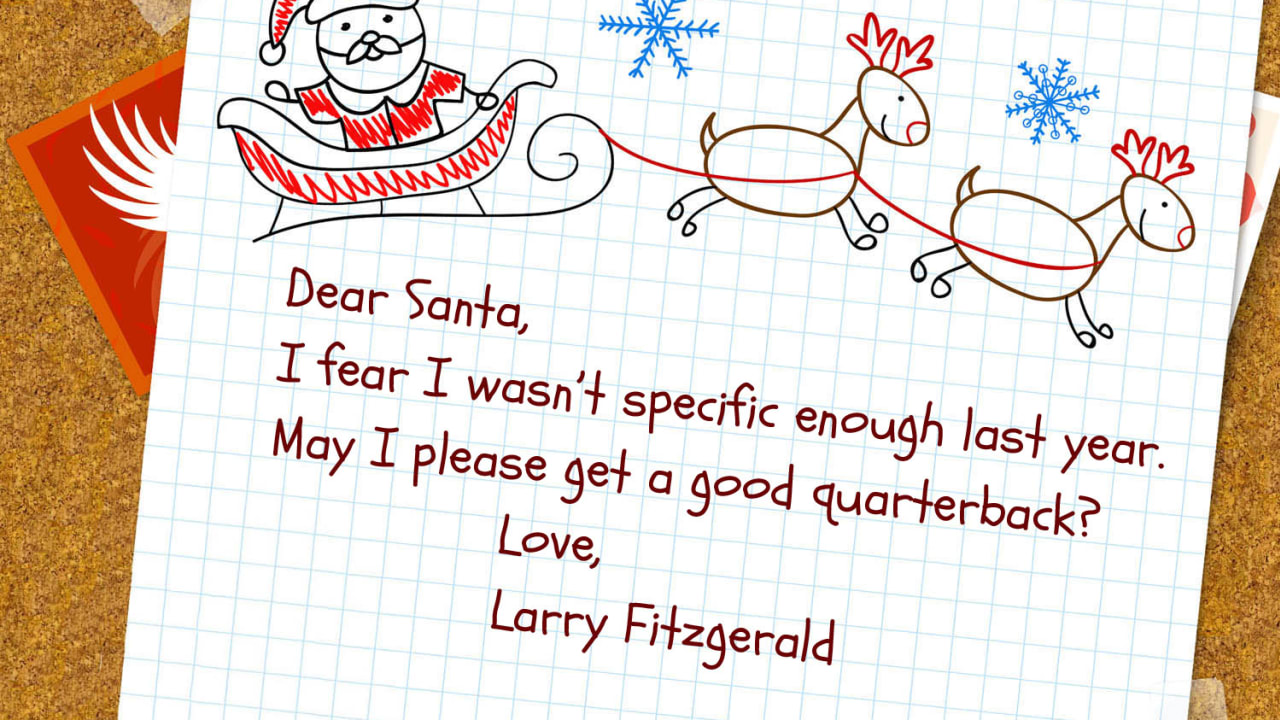 Dear Santa,
I fear I wasn't specific enough last year.
May I please get a good quarterback?
Love,
Larry Fitzgerald